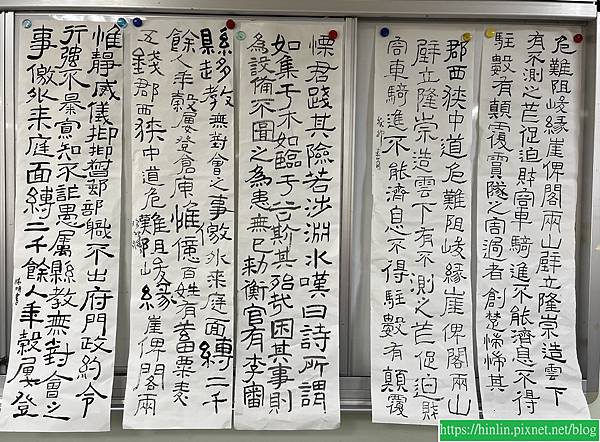 危難阻峻緣崖俾閣兩山壁立隆崇造雲下
有不測之芒促迫財容車騎進不能濟息不得
駐數有顛覆霣隧之害過者創楚惴惴其
郡西狹中道危難阻峻緣崖俾閣兩山
壁立隆崇造雲下有不測之芒促迫財
容車騎進不能濟息不得駐數有顛覆
慄君踐其險若涉淵水嘆曰詩所謂
如集于木如臨于谷斯其殆哉困其事則
為設備不圖之為患無已勑衡官有李瑾
縣趨教無對會之事徼外来庭面縛二千
餘人年穀屢登倉庾惟億百姓有蓄粟麦
五錢郡西狹中道危難阻峻緣崖俾閣兩
惟靜威儀抑抑督郵部職不出府門政約令
行強不暴寡知不詐愚屬縣教無對會之
事徼外来庭面縛二千餘人年穀屢登
https://hinlin.pixnet.net/blog